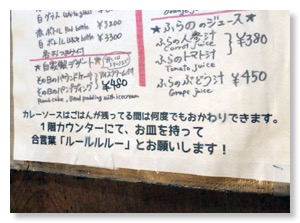 白グラス White glass
赤ボトル Red bottle ¥3200
白ボトル White bottle ¥3300
その日のパウンドケーキ
その日のパンプディング ¥480
Pound cake, Bread pudding with icecream
★ふらののジュース★
ふらの人参汁
Carrot Juice
ふらのトマト汁
Tomato Juice
¥380
ふらのぶどう汁 ¥450
Grape juice
カレーソースはごはんが残ってる間は何度でもおかわりできます。
1階カウンターにて、お皿を持って
合言葉「ルールルルー」とお願いします！